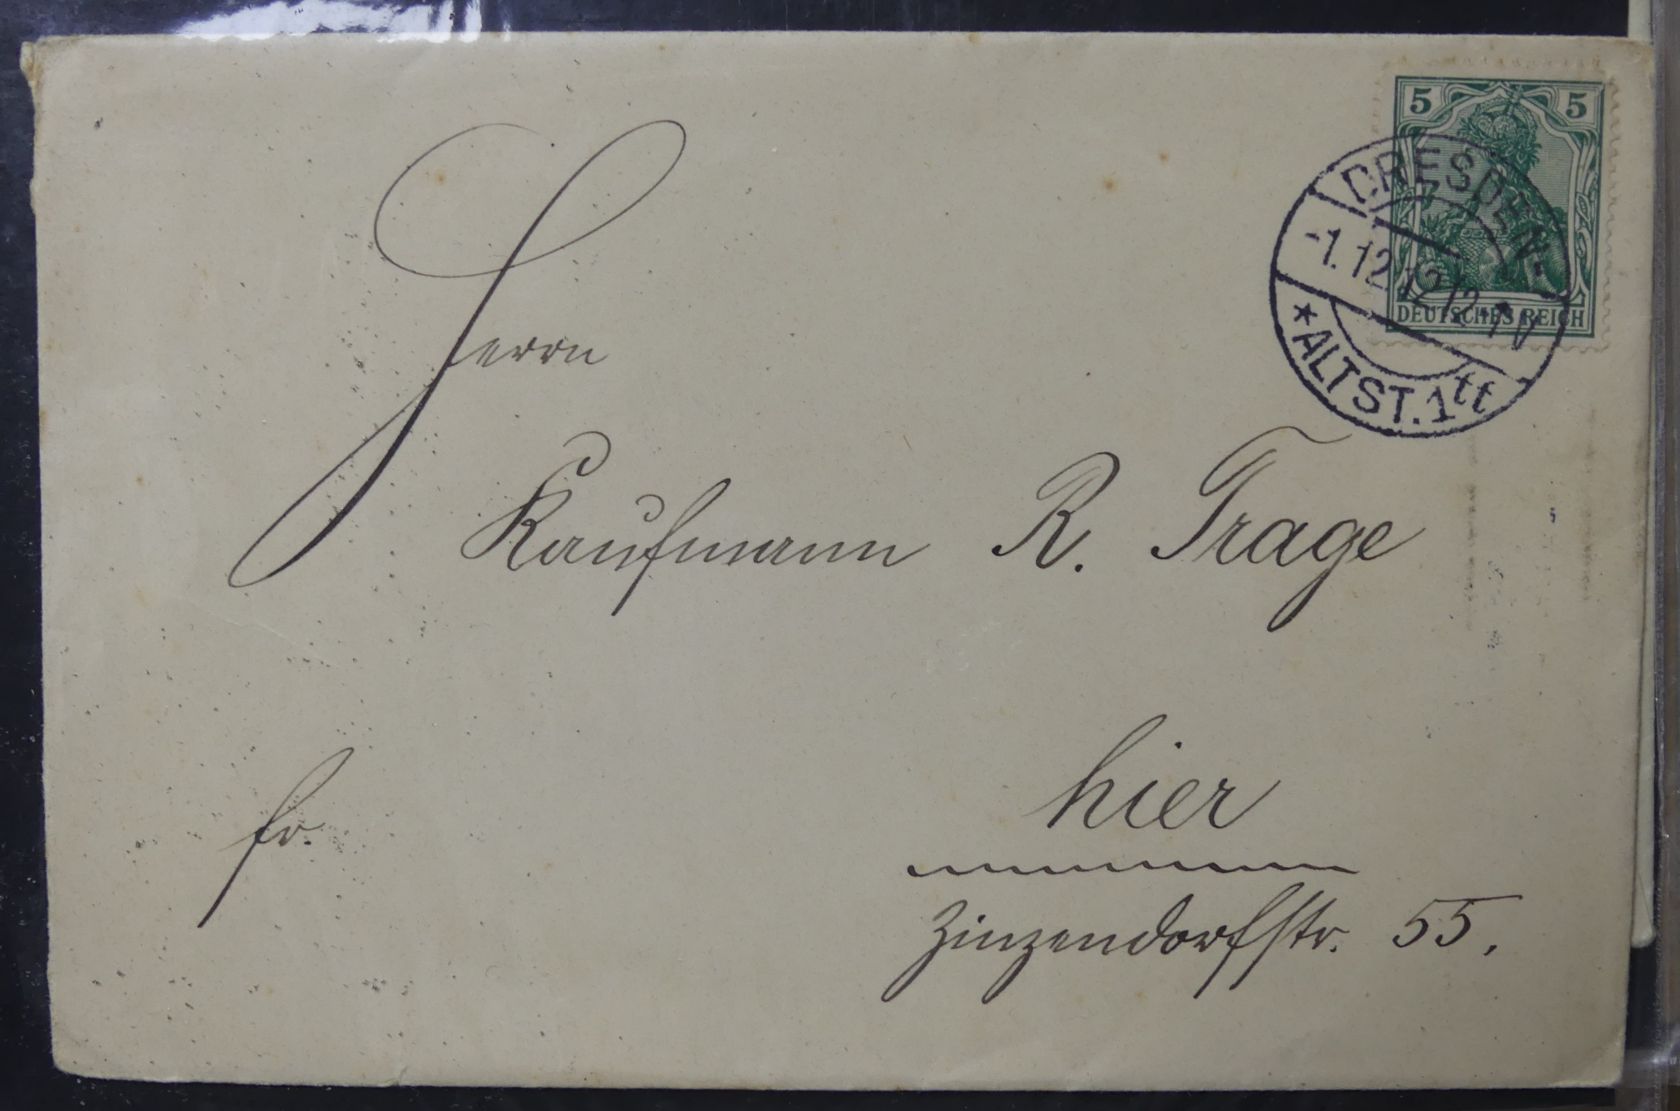 5 5
DEUTSCHES REICH
DRESDEN-
-1.12.12.12-1V
*ALTST.1tt
Herrn
Kaufmann R. Trage
hier
fr.
Zinzendorfstr. 55.